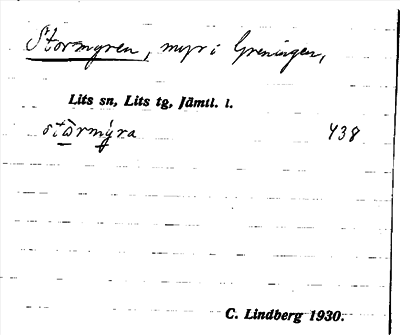 Stormyren, myr i Greningen,
Lits sn, Lits tg, Jämtl. l.
stòrmýra 438
C. Lindberg 1930.